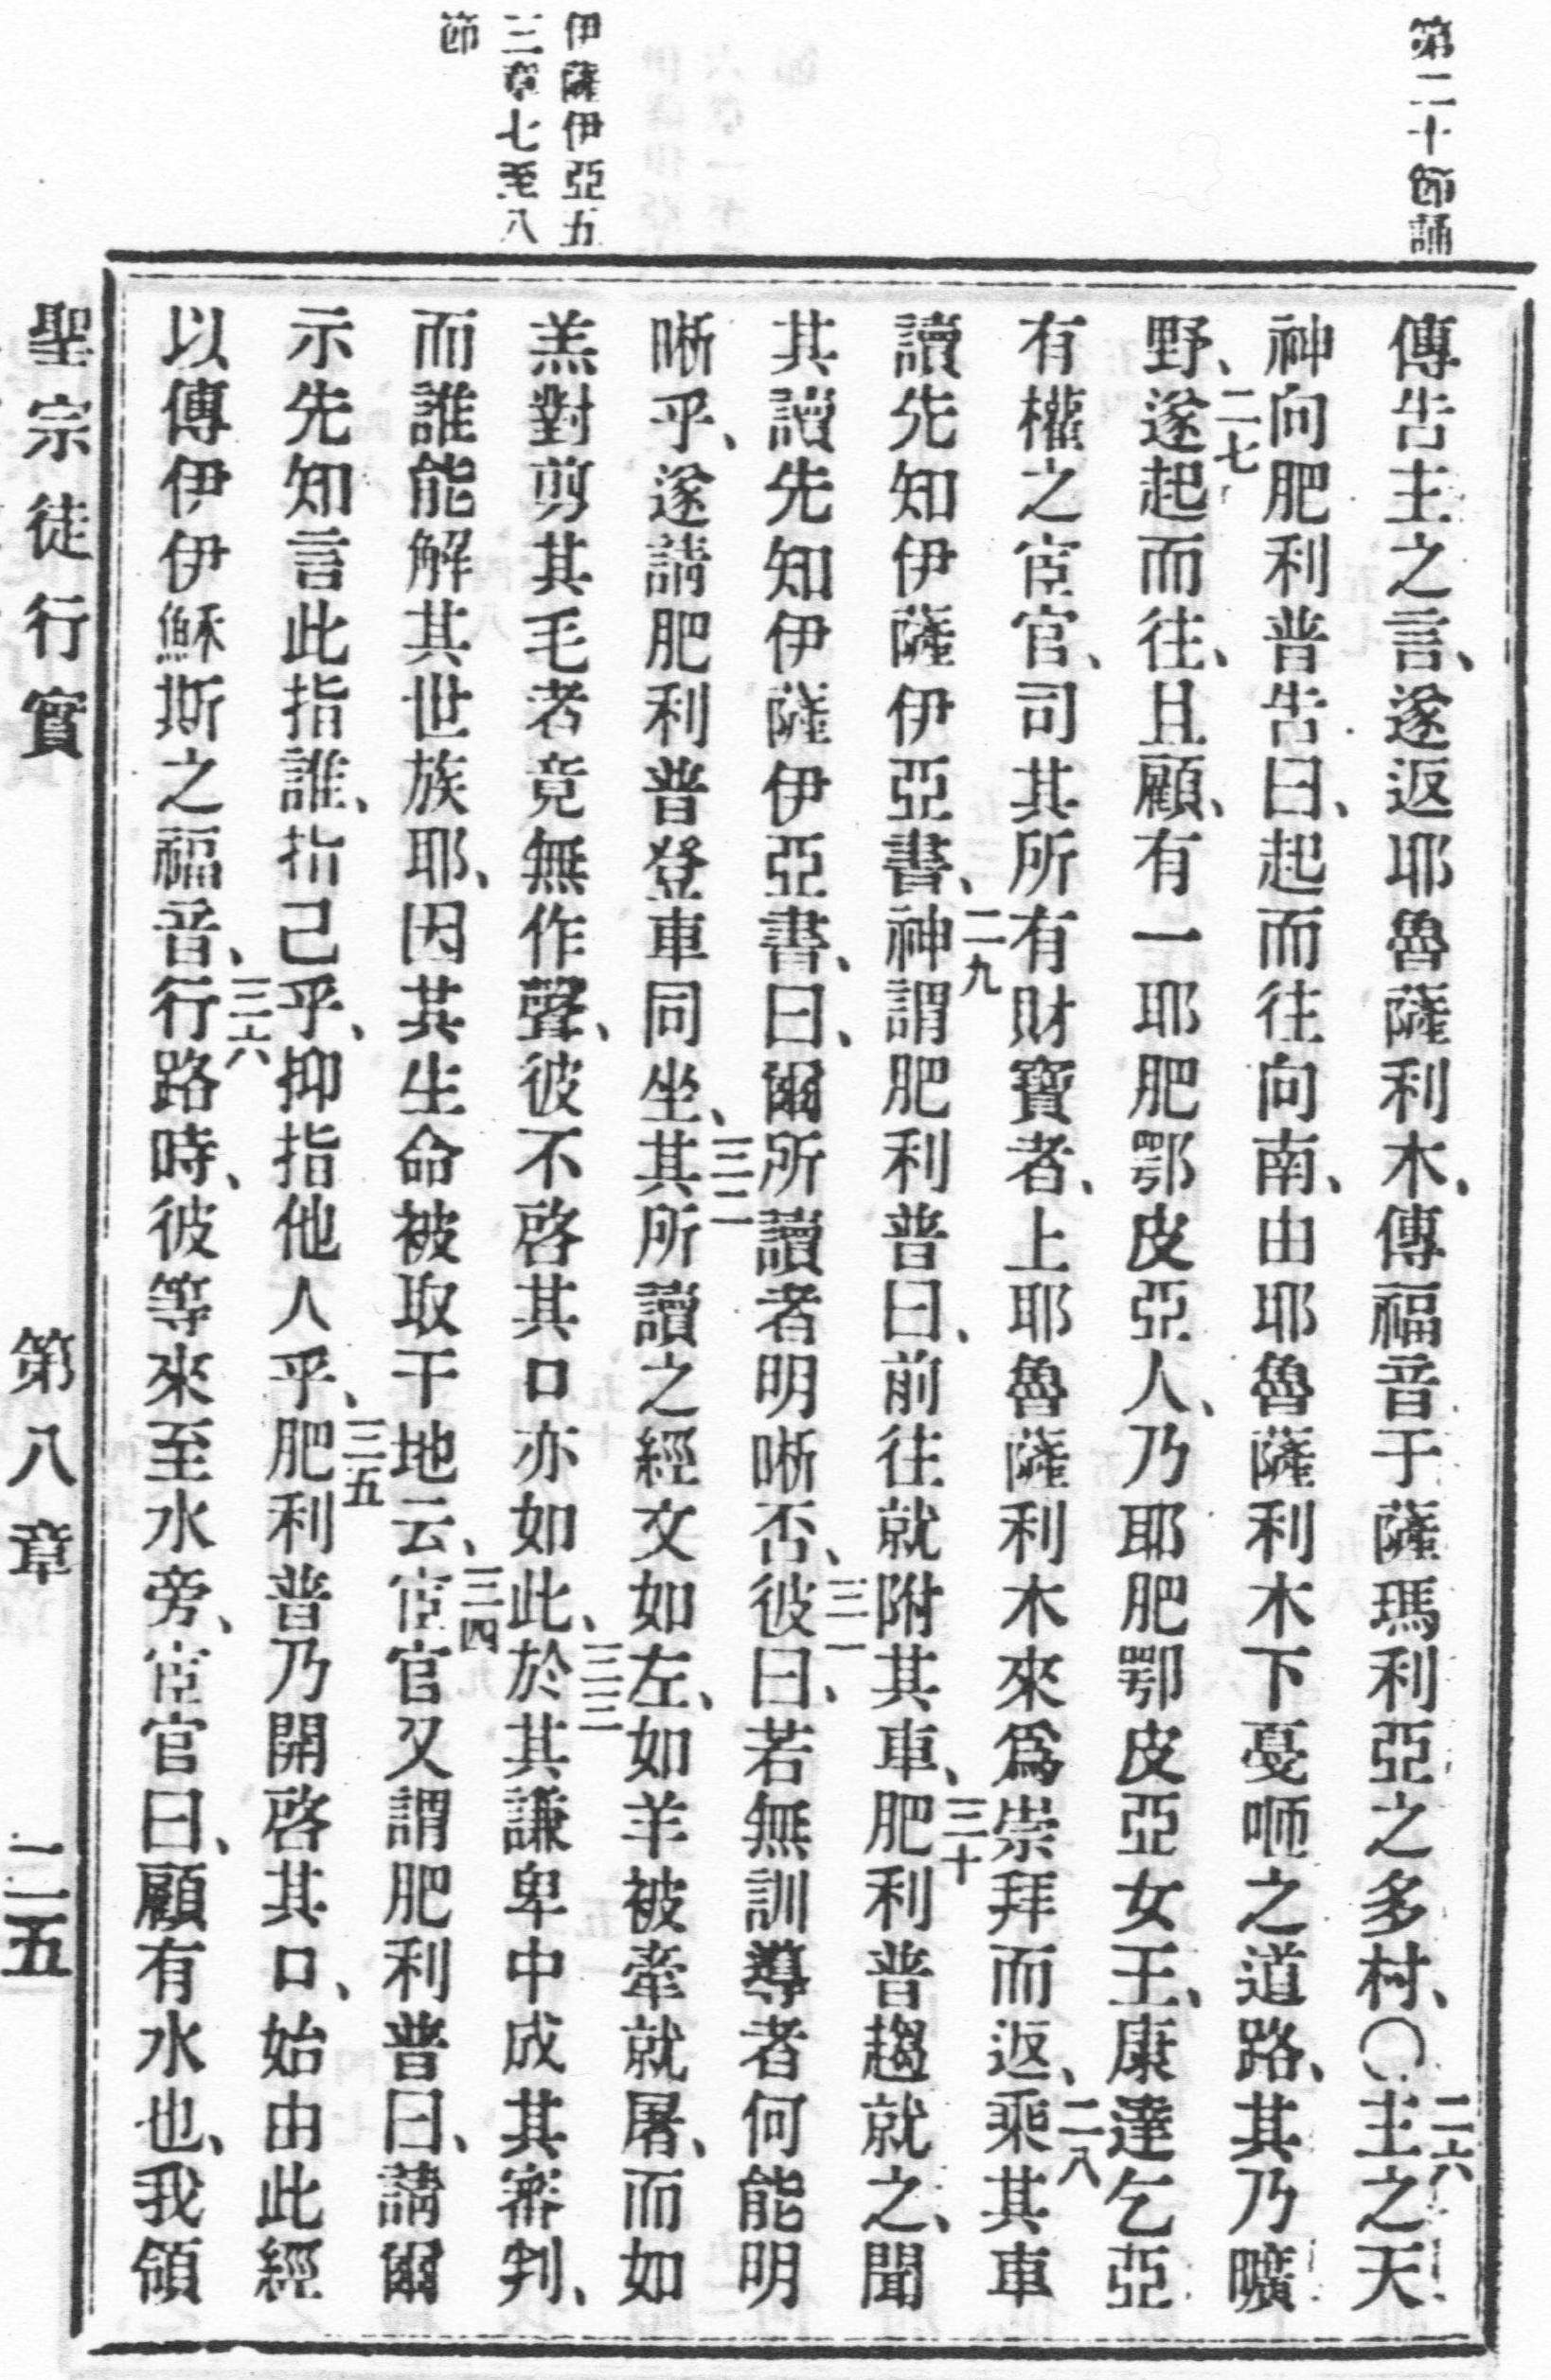 第二十節誦
伊薩伊亞五
三章七至八
節
傳告主之言、遂返耶魯薩利木、傳福音于薩瑪利亞之多村、〇二六主之天
神向肥利普告曰、起而往向南、由耶魯薩利木下戞咂之道路、其乃曠
野、二七遂起而往、且顧、有一耶肥鄂皮亞人、乃耶肥鄂皮亞女王、康達乞亞
有權之宦官、司其所有財寶者、上耶魯薩利木來爲崇拜而返、二八乘其車
讀先知伊薩伊亞書、二九神謂肥利普曰、前往就附其車、三十肥利普趨就之、聞
其讀先知伊薩伊亞書、曰、爾所讀者明晰否、三一彼曰、若無訓導者何能明
晰乎、遂請肥利普登車同坐、三二其所讀之經文如左、如羊被牽就屠、而如
羔對剪其毛者竟無作聲、彼不啓其口亦如此、三三於其謙卑中成其審判、
而誰能解其世族耶、因其生命被取干地云、三四宦官又謂肥利普曰、請爾
示先知言此指誰、指己乎、抑指他人乎、三五肥利普乃開啓其口、始由此經
以傳伊伊穌斯之福音、三六行路時、彼等來至水旁、宦官曰、顧有水也、我領
聖宗徒行實 第八章 一二五